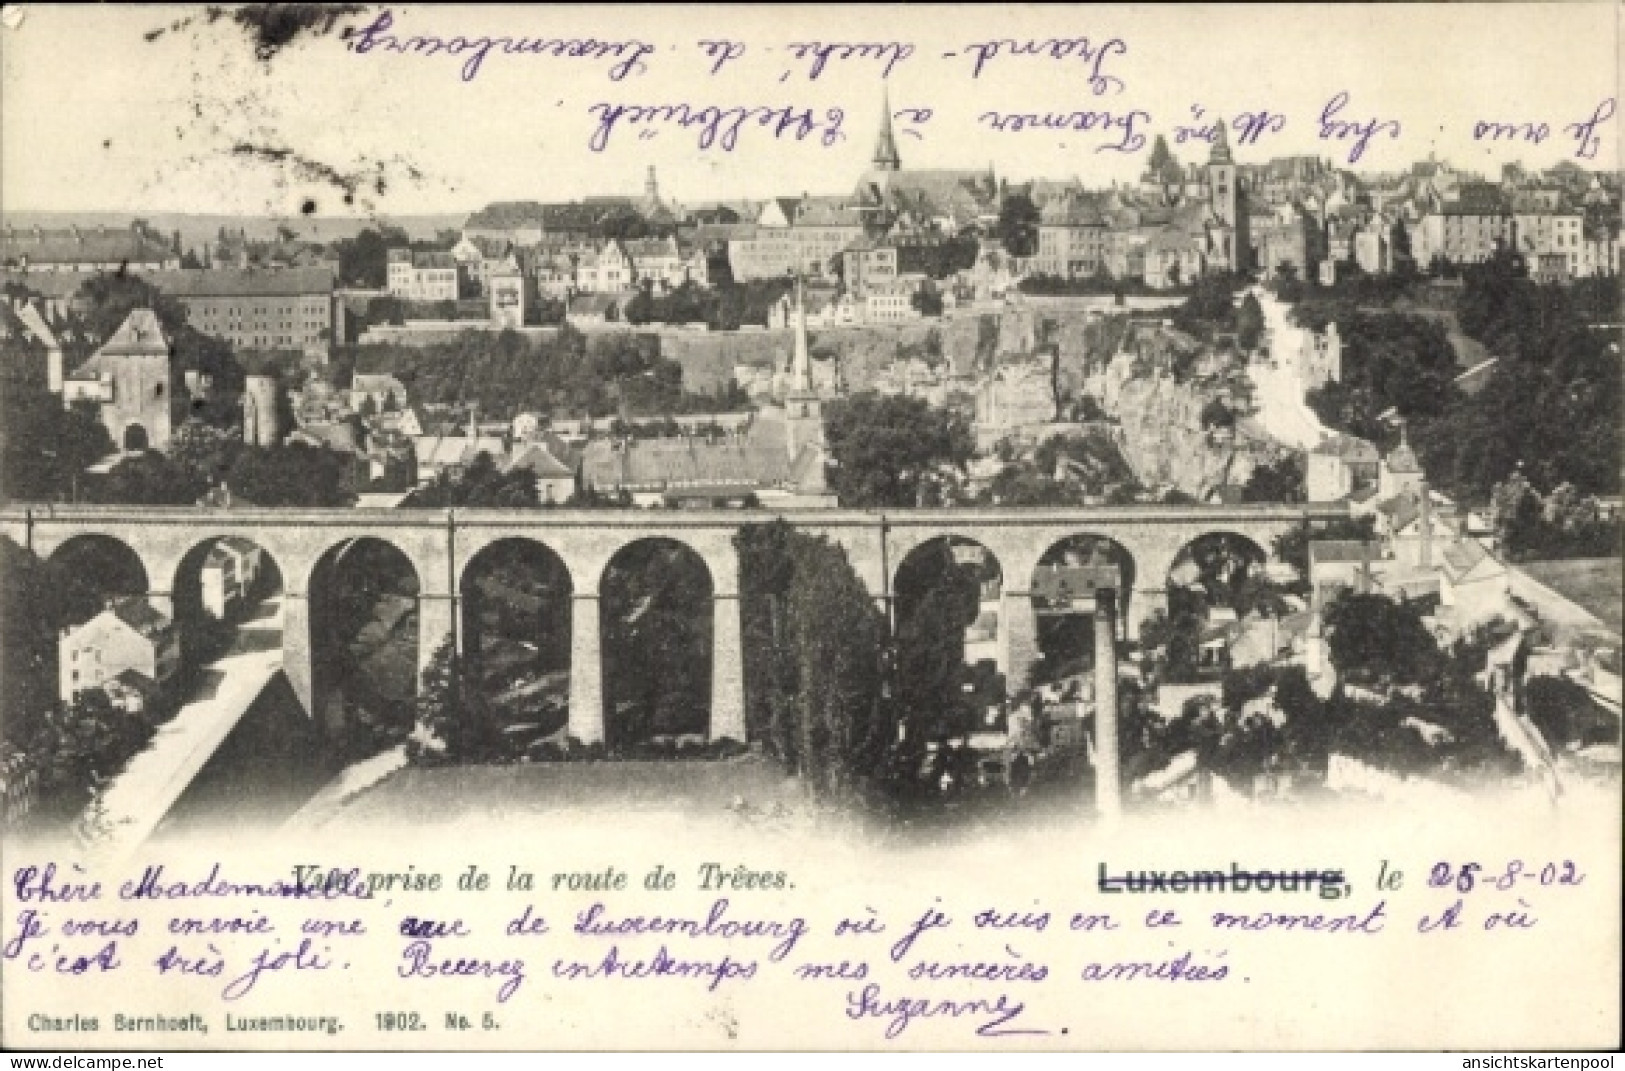 Je suis chez Mme Framer à Ettelbrück
Grand-duché de Luxembourg.
Vue prise de la route de Trêves.
Luxembourg, le 25-8-02
Chère Mademoiselle,
Je vous envoie une vue de Luxembourg où je suis en ce moment et où
c'est très joli. Recevez entretemps mes sincères amitiés.
Suzanne.
Charles Bernhoeft, Luxembourg. 1902. No. 5.
ansichtskartenpool